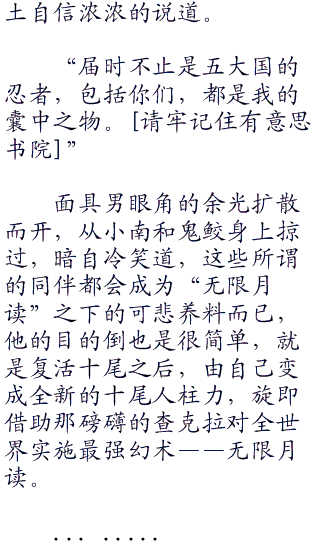 土自信浓浓的说道。
“届时不止是五大国的
忍者，包括你们，都是我的
囊中之物。[请牢记住有意思
书院]”
面具男眼角的余光扩散
而开，从小南和鬼鲛身上掠
过，暗自冷笑道，这些所谓
的同伴都会成为“无限月
读”之下的可悲养料而已，
他的目的倒也是很简单，就
是复活十尾之后，由自己变
成全新的十尾人柱力，旋即
借助那磅礴的查克拉对全世
界实施最强幻术——无限月
读。
... .....